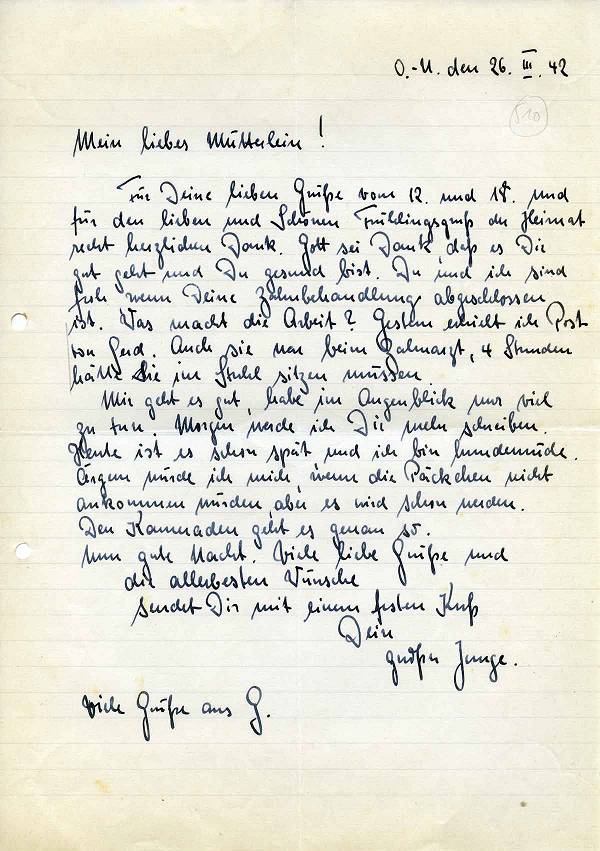 O.-U. den 26. III. 42
510
Mein liebes Mütterlein!
Für Deine lieben Grüße vom 12. und 18. und
für den lieben und schönen Frühlingsgruß der Heimat
recht herzlichen Dank. Gott sei Dank, daß es Dir
gut geht und Du gesund bist. Du und ich sind
froh wenn Deine Zahnbehandlung abgeschlossen
ist. Was macht die Arbeit? Gestern erhielt ich Post
von Gerd. Auch sie war beim Zahnarzt, 4 Stunden
hätte sie im Stuhl sitzen müssen.
Mir geht es gut, habe im Augenblick nur viel
zu tun. Morgen werde ich Dir mehr schreiben.
Heute ist es schon spät und ich bin hundemüde.
Ärgern würde ich mich, wenn die Päckchen nicht
ankommen würden, aber es wird schon werden.
Den Kameraden geht es genau so.
Nun gute Nacht. Viele liebe Grüße und
die allerbesten Wünsche
sendet Dir mit einem festen Kuß
Dein
großer Junge.
Viele Grüße aus G.